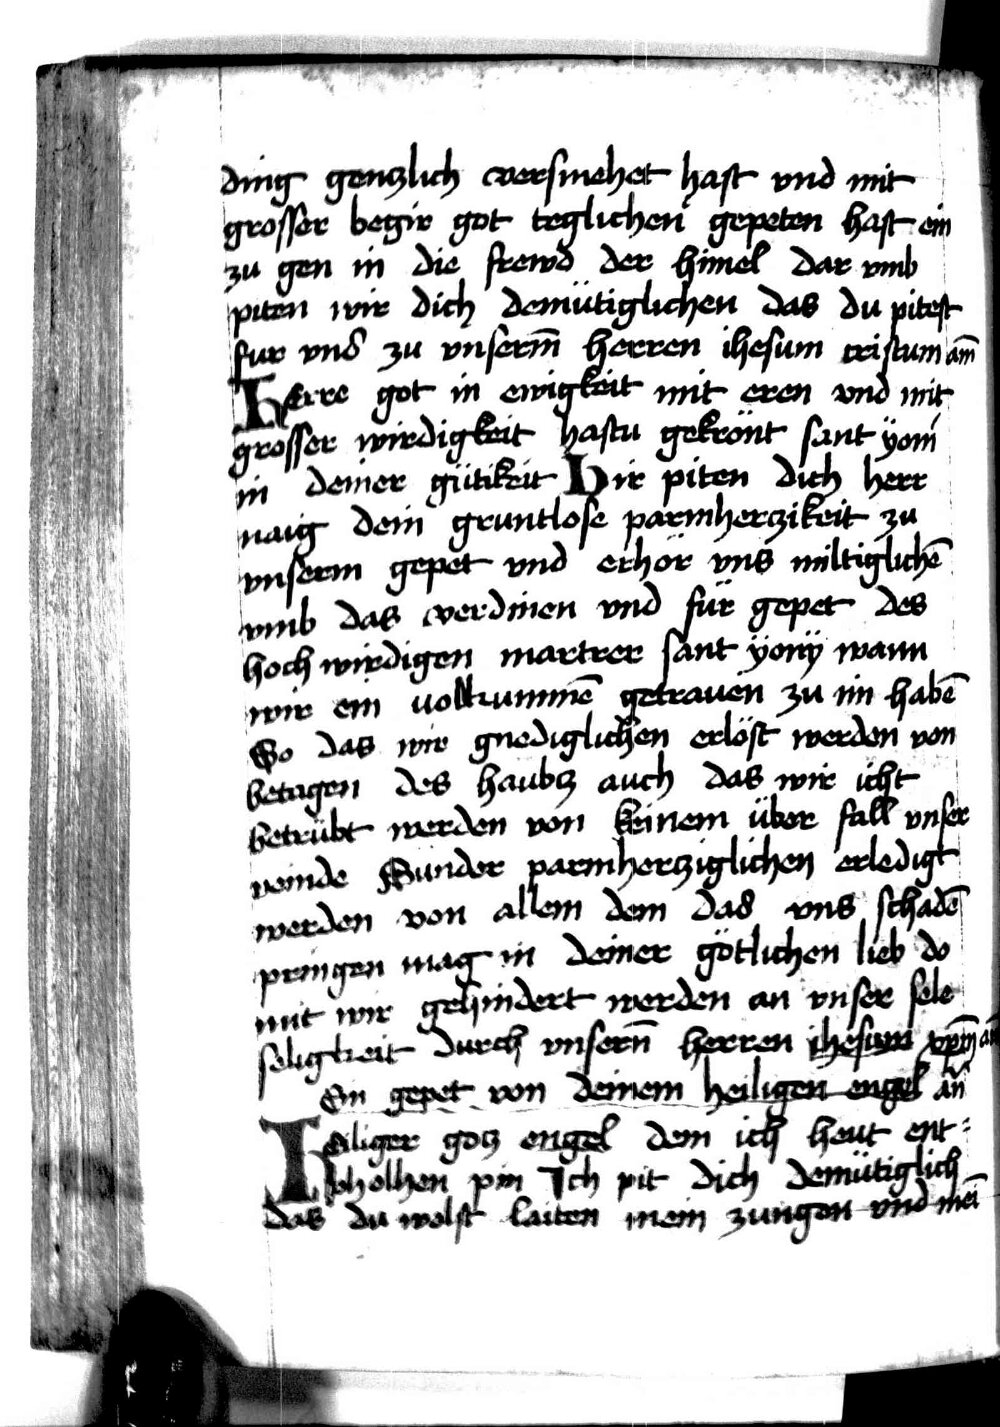 ding genczlich versmehet hast vnd mit
grosser begir got teglichen gepeten hast ein
zu gen in die frewd der himel dar vmb
piten wir dich demütiglichen das du pitest
fur vns zu vnserm̄ herren ihesum cristum am̄
Herre got in ewigkeit mit eren vnd mit
grosser wirdigkeit hastu gekrönt sant yoni
in deiner gütikeit Wir piten dich herr
naig dein gruntlose parmherczikeit zu
vnserm gepet vnd erhör vns miltiglichē
vmb das verdinen vnd für gepet des
hoch wirdigen martrer sant yony wann
wir ein volkummē getrauen zu im habē
So das wir gnediglichen erlöst werden von
betagen des haubcz auch das wir icht
betrübt werden von keinem über fall vnser
veinde Sunder parmhercziglichen erledigt
werden von allem dem das vns schadē
pringen mag in deiner götlichen lieb do
mit wir gehindert werden an vnser sele
seligkeit durch vnsern̄ herren ihesum xpm̄
Ein gepet von deinem heiligen engel
Heiliger gocz engel dem ich heut ent-
pholhen pin Ich pit dich demütiglich
das du wolst laiten mein zungen vnd mei